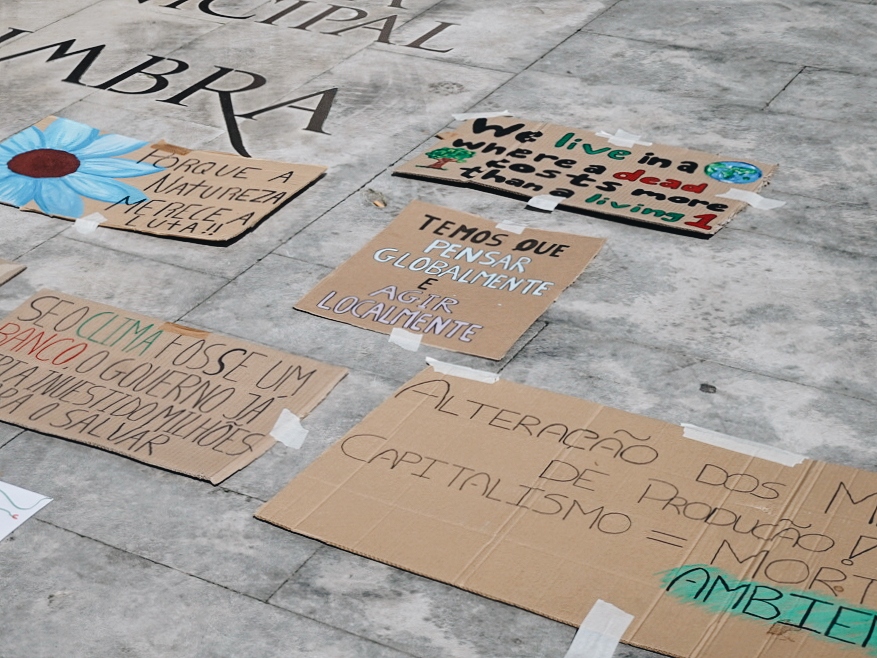 CIPAL
IMBRA
PORQUE A
NATUREZA
MERECE A
LUTA!!
We live in a
where a dead
costs more
than a living 1
TEMOS QUE
PENSAR
GLOBALMENTE
E
AGIR
LOCALMENTE
SE O CLIMA FOSSE UM
BANCO, O GOVERNO JÁ
INVESTIDO MILHÕES
O SALVAR
ALTERAÇÃO DOS M
DE PRODUÇÃO!
CAPITALISMO = MORT
AMBIEN